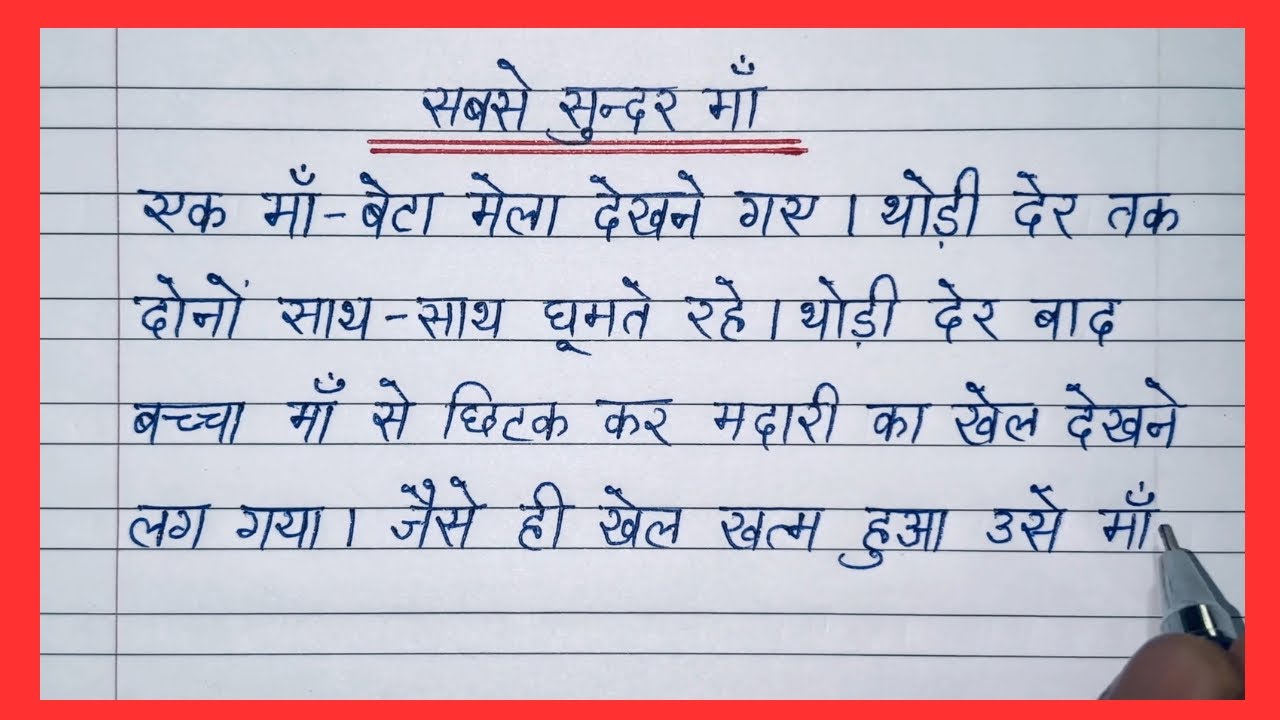 सबसे सुन्दर माँ
एक माँ-बेटा मेला देखने गए । थोड़ी देर तक
दोनों साथ-साथ घूमते रहे । थोड़ी देर बाद
बच्चा माँ से छिटक कर मदारी का खेल देखने
लग गया । जैसे ही खेल खत्म हुआ उसे माँ